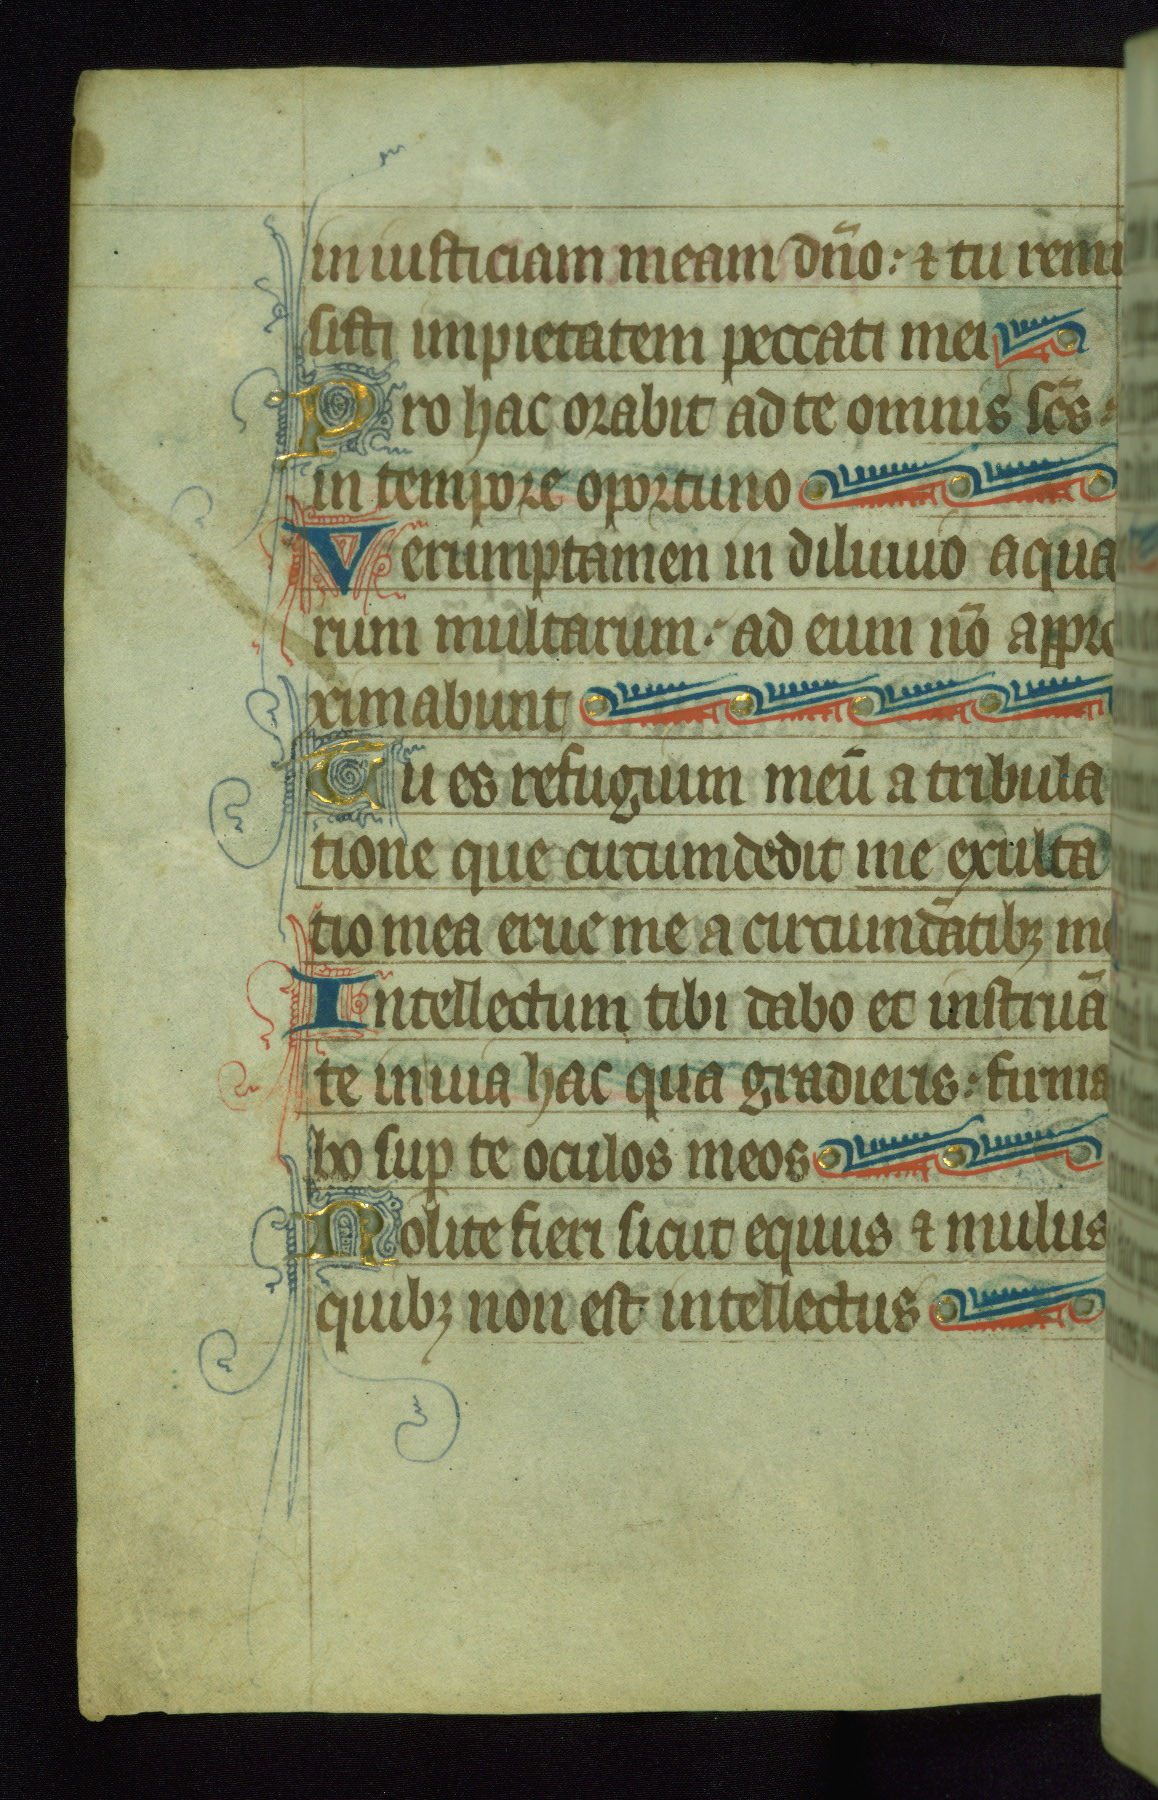 in iusticiam meam dn̄o: ⁊ tu remi
sisti impietatem peccati mei
Pro hac orabit ad te omnis sc̄s:
in tempore oportuno
Verumptamen in diluuio aqua
rum multarum: ad eum nō appro
ximabunt
Tu es refugium meū a tribula
tione que circumdedit me exulta
tio mea erue me a circumdātibꝫ me
Intellectum tibi dabo et instruā
te in uia hac qua gradieris: firma
bo suꝑ te oculos meos
Nolite fieri sicut equus ⁊ mulus
quibꝫ non est intellectus